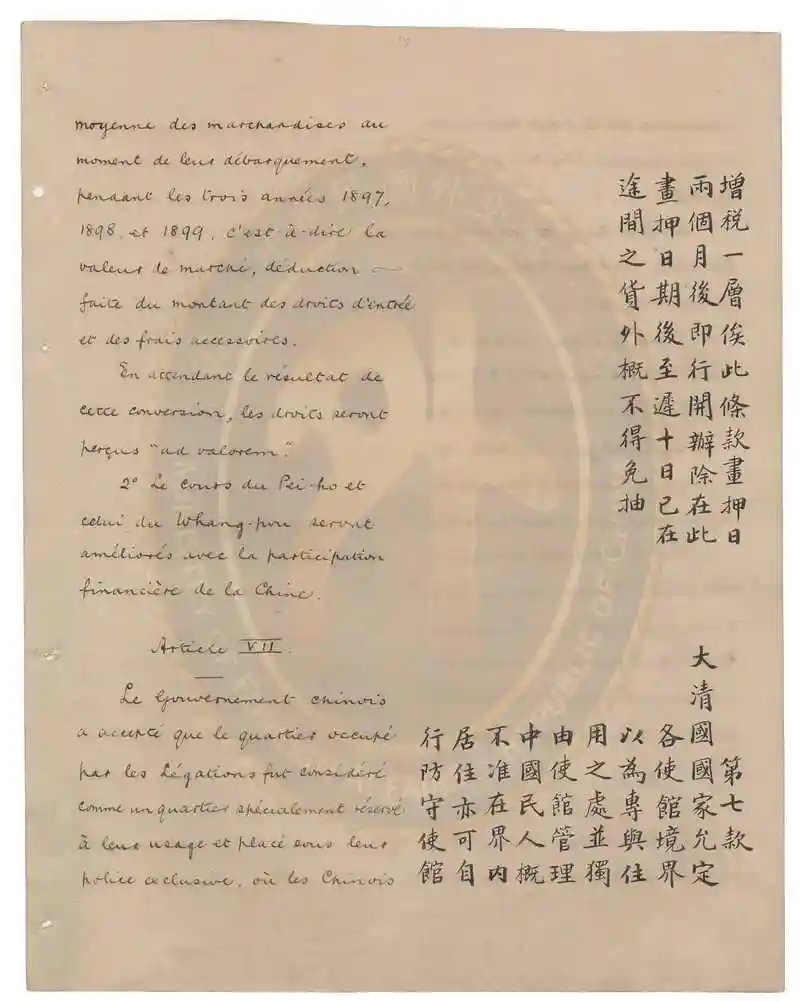 moyenne des marchandises au
moment de leur débarquement,
pendant les trois années 1897,
1898, et 1899, c'est à-dire la
valeur de marché, déduction
faite du montant des droits d'entrée
et des frais accessoires.
En attendant le résultat de
cette conversion, les droits seront
perçus "ad valorem".
2° Le cours du Pei-ho et
celui du Whang-pou seront
améliorés avec la participation
financière de la Chine.
Article VII.
Le Gouvernement chinois
a accepté que le quartier occupé
par les Légations fut considéré
comme un quartier spécialement réservé
à leur usage et placé sous leur
police exclusive, où les Chinois
增稅一層俟此條款畫押日
兩個月後即行開辦除在此
畫押日期後至遲十日已在
途間之貨外概不得免抽
第七款
大清國國家允定
各使館境界
以為專與住
用之處並獨
由使館管理
中國民人概
不准在界內
居住亦可自
行防守使館